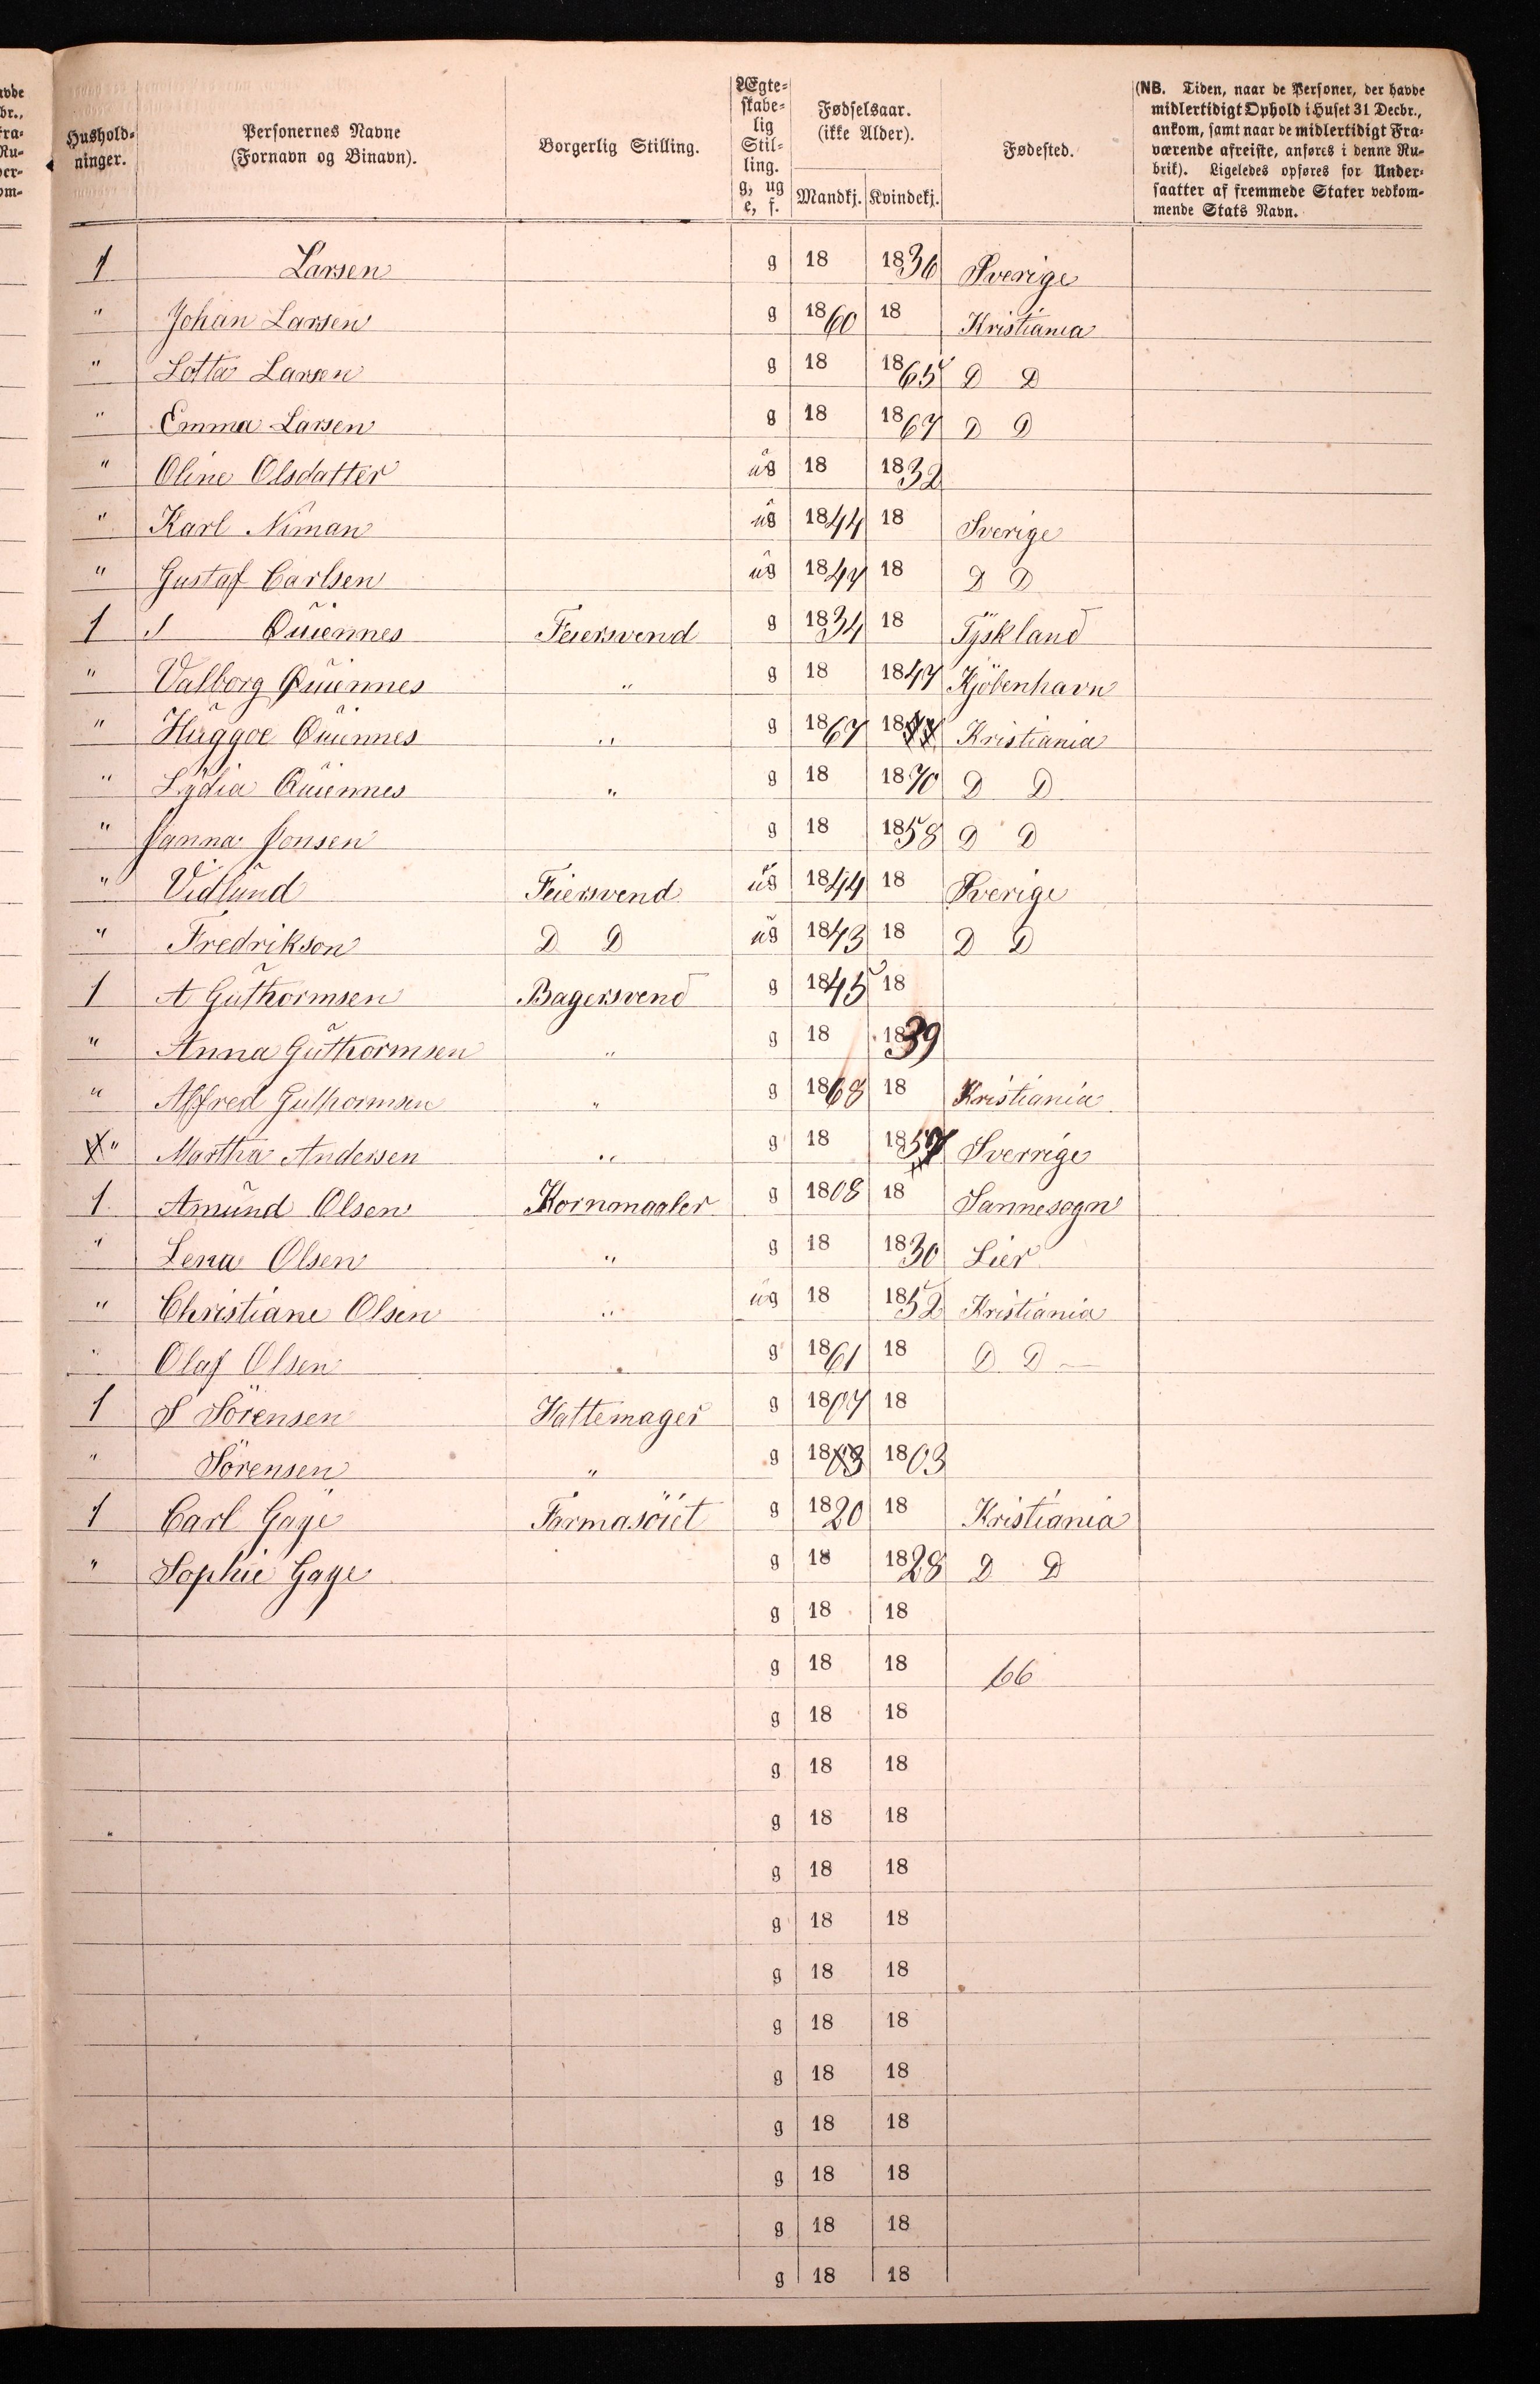 Hushold-
ninger.
Personernes Navne
(Fornavn og Binavn).
Borgerlig Stilling.
Ægte-
skabe-
lig
Stil-
ling.
g, ug
e, f.
Fødselsaar.
(ikke Alder).
Mandkj. Kvindekj.
Fødested.
(NB. Tiden, naar de Personer, der havde
midlertidigt Ophold i Huset 31 Decbr.,
ankom, samt naar de midlertidigt Fra-
værende afreiste, anføres i denne Ru-
brik). Ligeledes opføres for Under-
saatter af fremmede Stater vedkom-
mende Stats Navn.
1 Larsen g 18 1836 Sverige
" Johan Larsen g 1860 18 Kristiania
" Lotta Larsen g 18 1865 D D
" Emma Larsen g 18 1867 D D
" Oline Olsdatter ug 18 1832
" Karl Niman ug 1844 18 Sverige
" Gustaf Carlsen ug 1847 18 D D
1 S Quiennes Feiersvend g 1834 18 Tyskland
" Valborg Quiennes " g 18 1847 Kjöbenhavn
" Huggoe Quiennes " g 1867 18 Kristiania
" Lydia Quiennes " g 18 1870 D D
" Janna Jonsen g 18 1858 D D
" Vidlund Feiersvend ug 1844 18 Sverige
" Fredrikson D D ug 1843 18 D D
1 A Guthormsen Bagersvend g 1845 18
" Anna Guthormsen " g 18 1839
" Alfred Guthormsen " g 1868 18 Kristiania
" Martha Andersen " g 18 1857 Sverrige
1 Amund Olsen Kornmaaler g 1808 18 Sannesogn
" Lena Olsen " g 18 1830 Lier
" Christiane Olsen " ug 18 1852 Kristiania
" Olaf Olsen g 1861 18 D D
1 S Sörensen Hattemager g 1807 18
" Sörensen " g 1803 1803
1 Carl Gaye Farmasöiet g 1820 18 Kristiania
" Sophie Gaye g 18 1828 D D
g 18 18
g 18 18 66
g 18 18
g 18 18
g 18 18
g 18 18
g 18 18
g 18 18
g 18 18
g 18 18
g 18 18
g 18 18
g 18 18
g 18 18